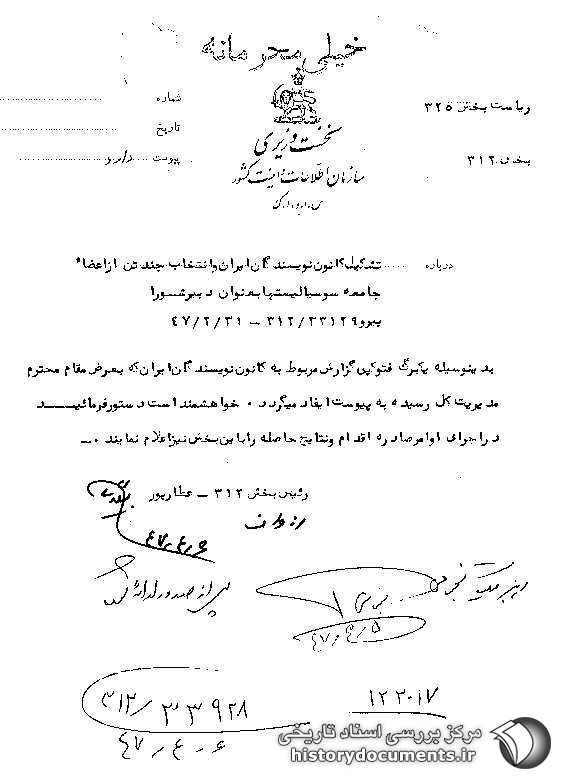 خیلی محرمانه
ریاست بخش ۳۲۵
بخش ۳۱۲
نخست وزیری
سازمان اطلاعات و امنیت کشور
س.ا.و.ا.ک
شماره
تاریخ
پیوست دارد
درباره ..... تشکیل کانون نویسندگان ایران و انتخاب چند تن از اعضاء
جامعه سوسیالیستها بعنوان دبیر شورا
پیرو ۳۱۲/۲۳۱۲۹ - ۴۷/۲/۳۱
بدینوسیله یکبرگ فتوکپی گزارش مربوط به کانون نویسندگان ایران که بعرض مقام محترم
مدیریت کل رسیده به پیوست ایفاد میگردد ۰ خواهشمند است دستور فرمائیـــد
در اجرای اوامر صادره اقدام و نتایج حاصله را باین بخش نیز اعلام نمایند ۰ـ
رئیس بخش ۳۱۲ - عطارپور
۴۷/۴/۶
پس از صدور ارائه گردد
۴۷/۴/۵
۳۱۲/۳۳۹۲۸
۴۷/۴/۶
۱۲۳۰۱۷
مرکز بررسی اسناد تاریخی
historydocuments.ir